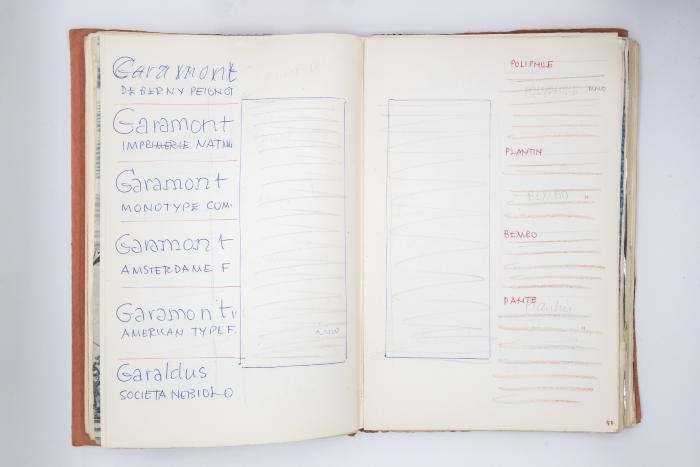 Garamont
DE BERNY PEIGNOT
Garamont
IMPRIMERIE NATNA
Garamont
MONOTYPE COM.
Garamont
AMSTERDAME F
Garamont
AMERICAN TYPE F.
Garaldus
SOCIETA NEBIOLO
POLIPHILE
POLIPHILE
PLANTIN
BEMBO "
BEMBO
DANTE
Plantin
"